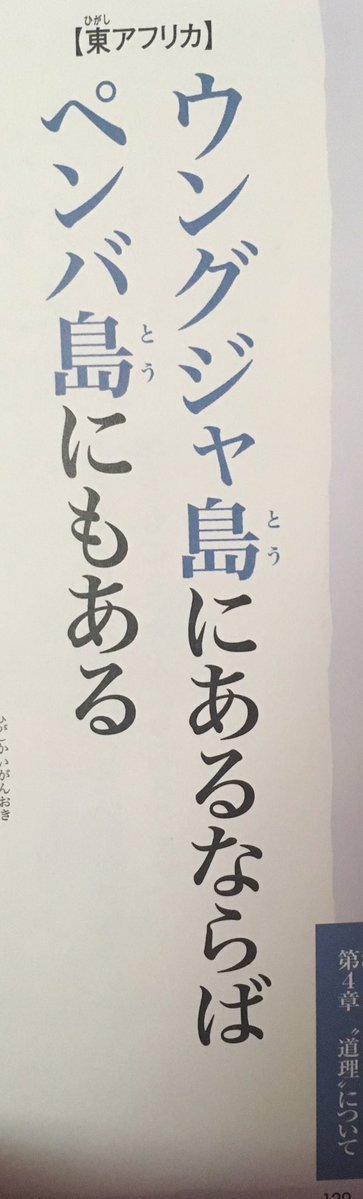 ウングジャ島にあるならば
とう
ペンバ島にもある
とう
【東アフリカ】
ひがし
第4章 〝道理〟について
ひがしかいがんおき